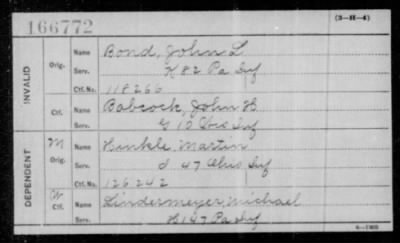 166772
(3-H-4)
INVALID
Orig.
Name Bond, John L
Serv. K 82 Pa Inf
Ctf. No. 118266
Ctf.
Name Babcock, John H.
Serv. G 10 Ohio Inf
DEPENDENT
M
Orig.
Name Hinkle, Martin
Serv. I 47 Ohio Inf
Ctf. No. 126242
W
Ctf.
Name Lindermeyer, Michael
Serv. H 147 Pa Inf